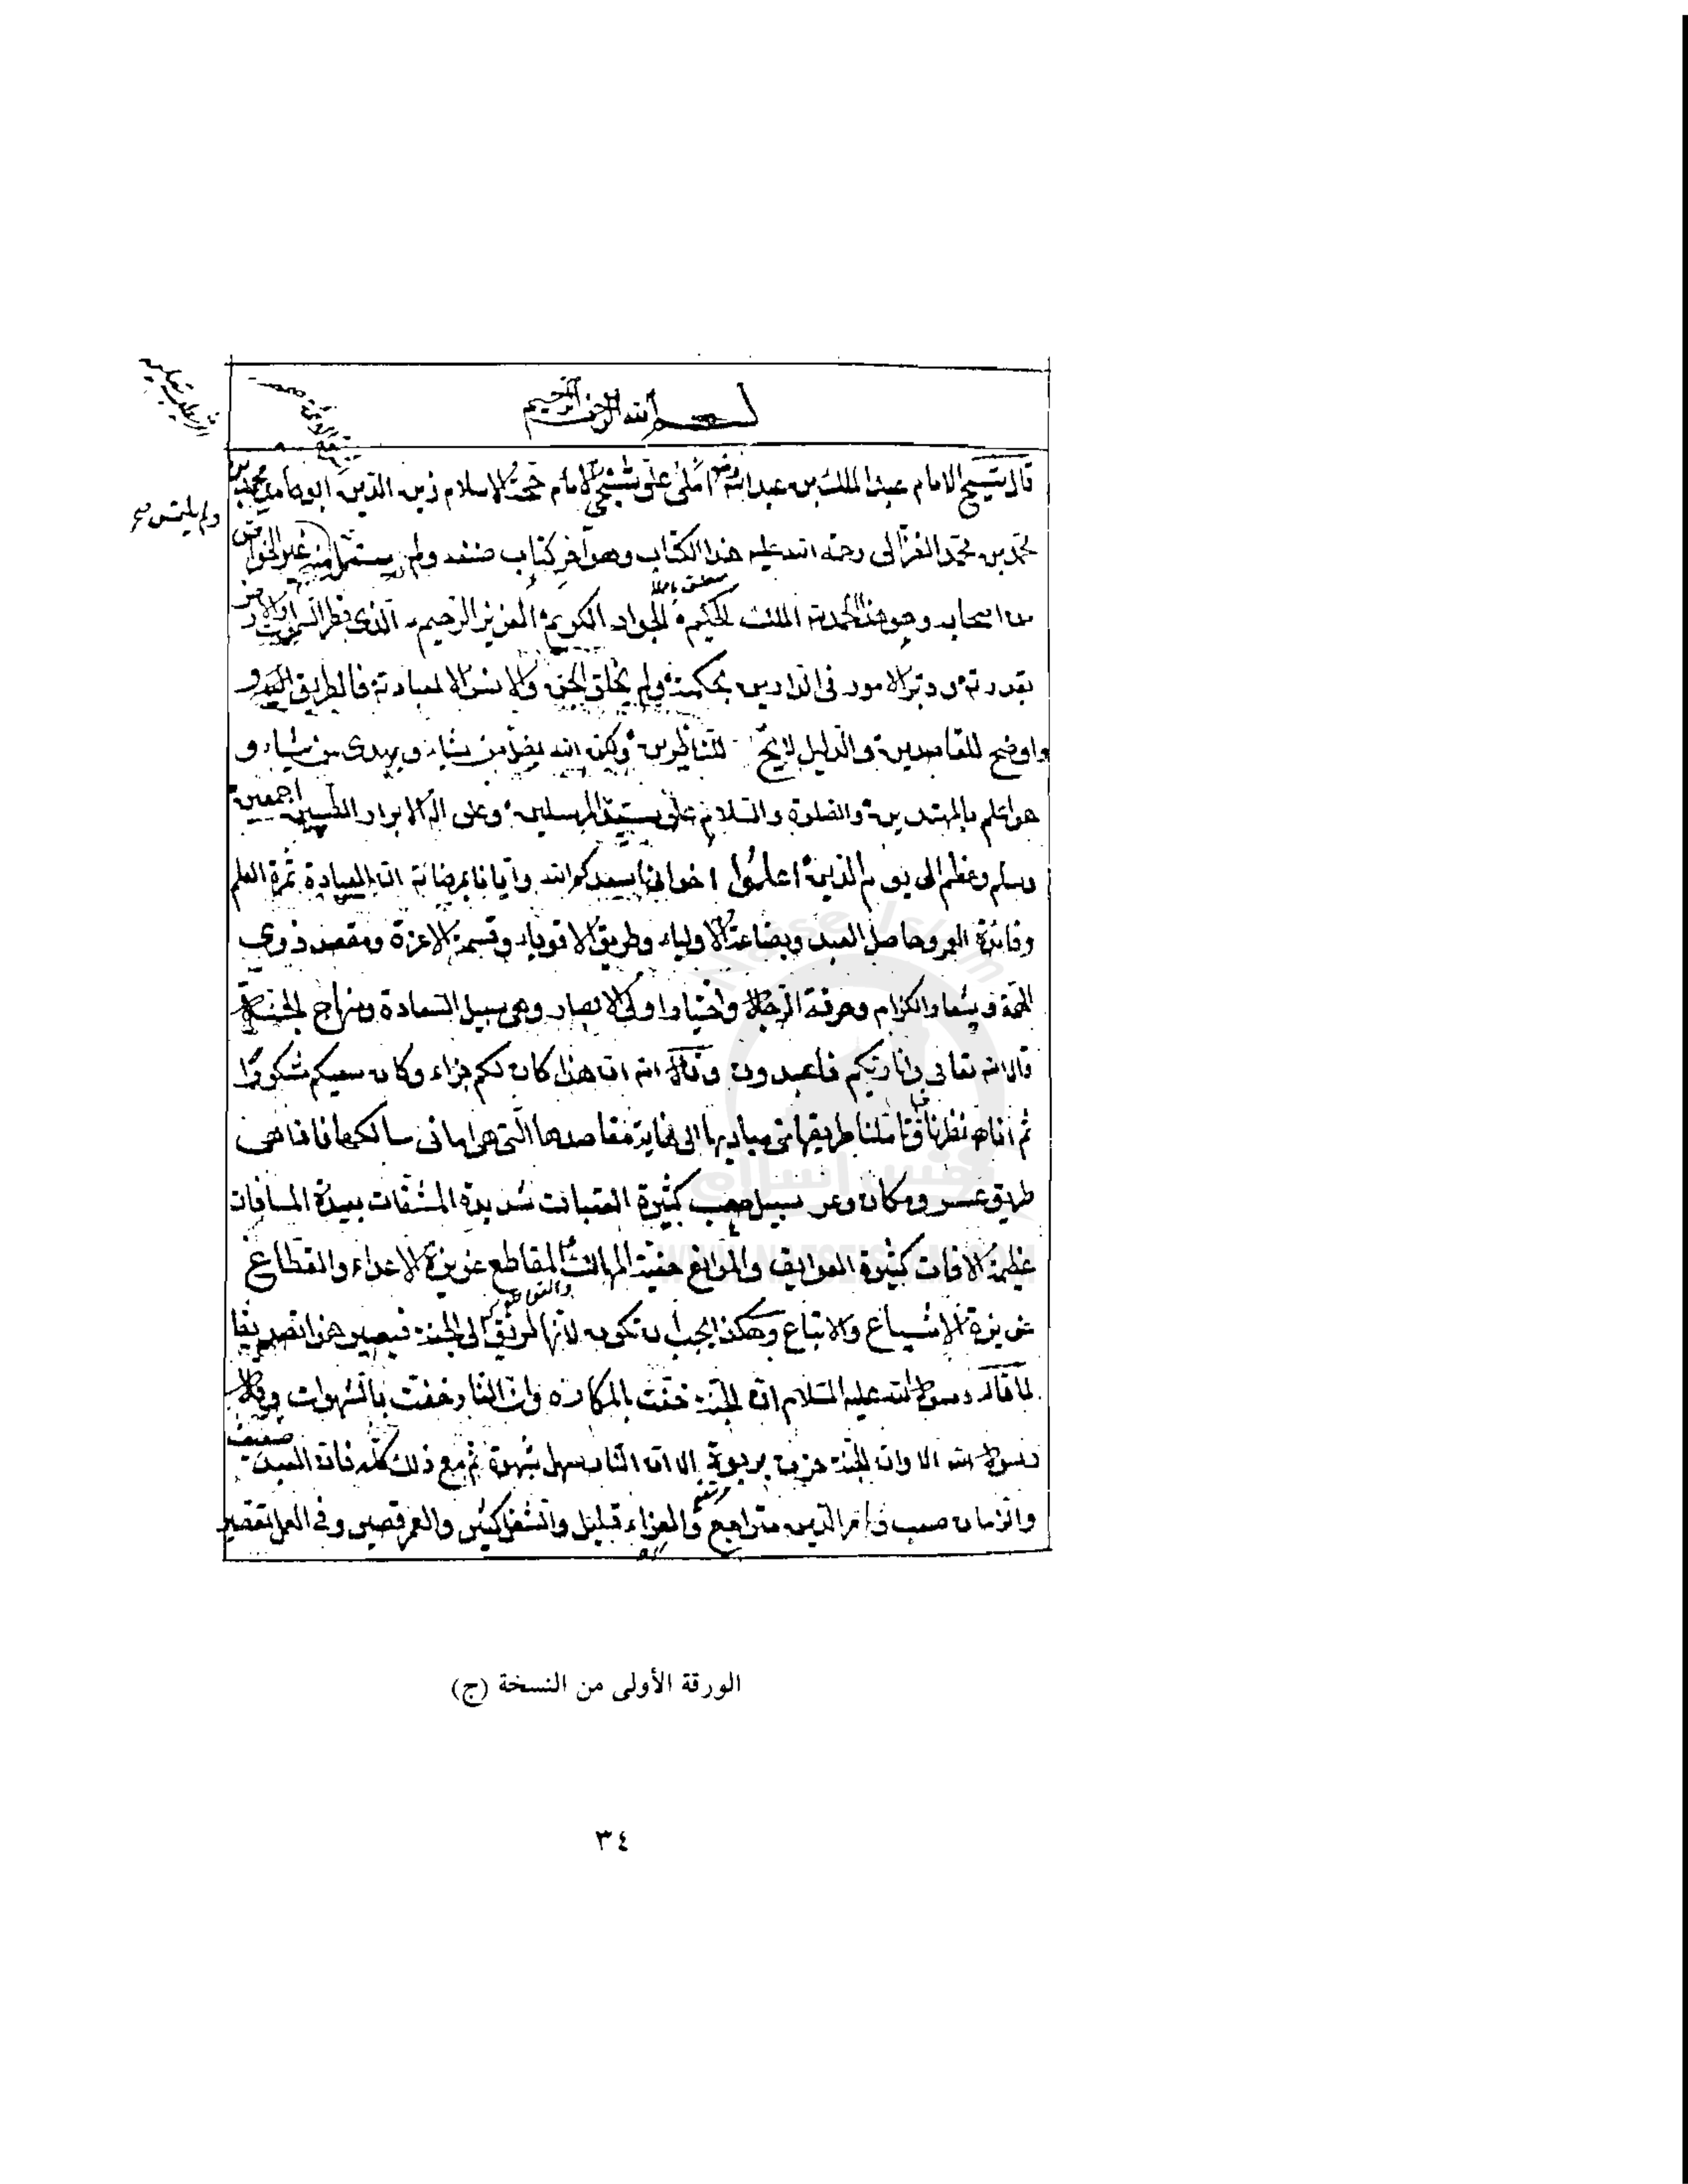 بسم الله الرحمن الرحيم
قال الشيخ الامام عبد الملك بن عبدالله املى على شيخى الامام حجة الاسلام زين الدين ابو حامد محمد بن
محمد بن محمد الغزالى رحمة الله عليه هذا الكتاب وهو آخر كتاب صنفه ولم يستمل منه غير الخواص
من اصحابه وهو هذا الحمد لله الملك الحكيم الجواد الكريم العزيز الرحيم الذى فطر السموات والارض
بقدرته ودبر الامور فى الدارين بحكمته ولم يخلق الجن والانس الا لعبادته فالطريق اليه و
واوضح للقاصدين والدليل لايح للناظرين ولكن الله يضل من يشاء ويهدى من يشاء و
هو اعلم بالمهتدين والصلوة والسلام على سيد المرسلين وعلى اله الابرار الطيبين اجمعين
وسلم وعظم الى يوم الدين اعلموا اخوانى اسعدكم الله وايانا بمرضاته ان العبادة ثمرة العلم
وفائدة العمر وحاصل العبد وبضاعة الاولياء وطريق الاقوياء وقسمة الاعزة ومقصد ذوى
الهمة وشعار الكرام وحرفة الرجال واختيار اولى الابصار وهى سبيل السعادة ومنهاج الجنة
قال الله تعالى وانا ربكم فاعبدون وقال الله ان هذا كان لكم جزاء وكان سعيكم مشكورا
ثم انا نظرنا فيها فتاملنا طريقها من مباديها الى غاية مقاصدها التى هى امانى سالكها فاذا هى
طريق عسر ومكان وعر سبيل صعب كثيرة العقبات شديدة المشقات بعيدة المسافات
عظيمة الافات كثيرة العوايق والموانع خفية المهالك والمقاطع عزيزة الاعداء والقطاع
عزيزة الاشياع والاتباع وهكذا يجب ان تكون لانها طريق الى الجنة فيصير هذا تصديقا
لما قال رسول الله عليه السلام ان الجنة حفت بالمكاره وان النار حفت بالشهوات وقال
رسول الله الا وان الجنة حزن بربوة الا ان النار سهل بشهوة ثم مع ذلك كله فان العبد ضعيف
والزمان صعب وامر الدين متراجع والفراغ قليل والشغل كثير والعمر قصير وفى العمل تقصير
الورقة الأولى من النسخة (ج)
٣٤
Nafse Islam
نفس اسلام
WWW.NAFSEISLAM.COM